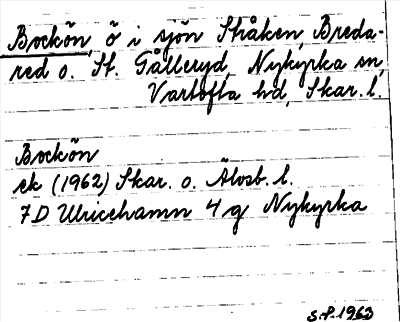 Bockön, ö i sjön Stråken, Breda-
red o. St. Gålleryd, Nykyrka sn,
Vartofta hd, Skar. l.
Bockön
ek (1962) Skar. o. Älvsb. l.
7D Ulricehamn 4g Nykyrka
S.P. 1963